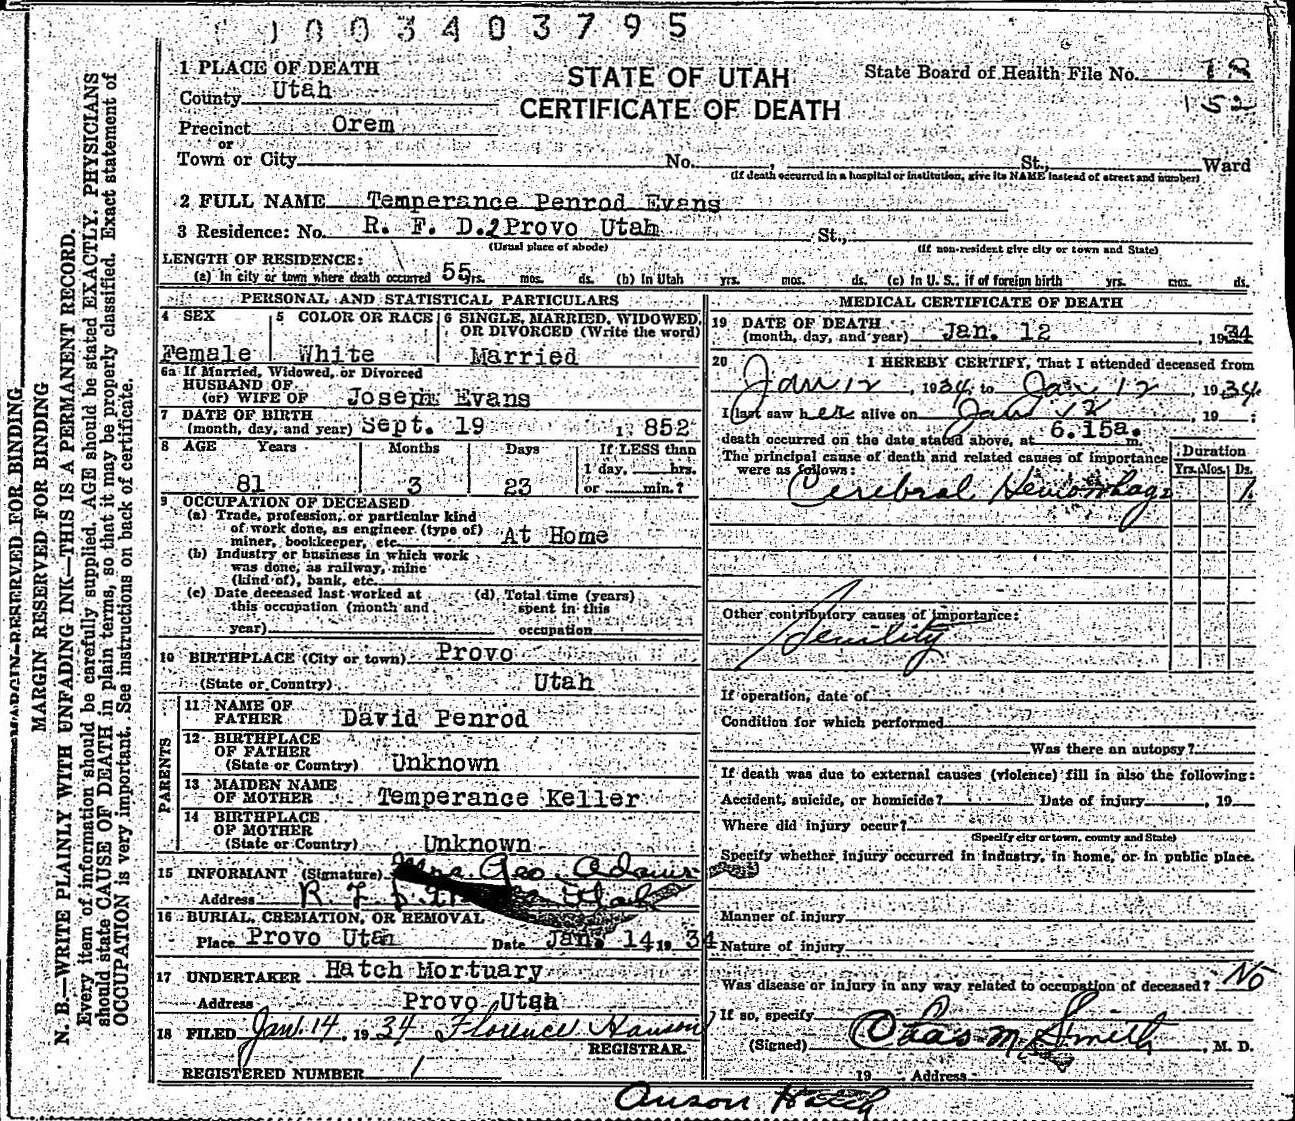 1003403795
STATE OF UTAH
CERTIFICATE OF DEATH
State Board of Health File No. 18
152
1 PLACE OF DEATH
County Utah
Precinct Orem
or
Town or City No. , St., Ward
(If death occurred in a hospital or institution, give its NAME instead of street and number)
2 FULL NAME Temperance Penrod Evans
3 Residence: No. R. F. D. 2 Provo Utah St.,
(Usual place of abode) (If non-resident give city or town and State)
LENGTH OF RESIDENCE:
(a) In city or town where death occurred 55 yrs. mos. ds. (b) In Utah yrs. mos. ds. (c) In U. S., if of foreign birth yrs. mos. ds.
PERSONAL AND STATISTICAL PARTICULARS
4 SEX 5 COLOR OR RACE 6 SINGLE, MARRIED, WIDOWED, OR DIVORCED (Write the word)
Female White Married
6a If Married, Widowed, or Divorced
HUSBAND OF
(or) WIFE OF Joseph Evans
7 DATE OF BIRTH
(month, day, and year) Sept. 19 1, 852
8 AGE Years Months Days If LESS than
1 day, hrs.
81 3 23 or min.?
9 OCCUPATION OF DECEASED
(a) Trade, profession, or particular kind
of work done, as engineer (type of)
miner, bookkeeper, etc. At Home
(b) Industry or business in which work
was done, as railway, mine
(kind of), bank, etc.
(c) Date deceased last worked at (d) Total time (years)
this occupation (month and spent in this
year) occupation
10 BIRTHPLACE (City or town) Provo
(State or Country) Utah
PARENTS
11 NAME OF
FATHER David Penrod
12 BIRTHPLACE
OF FATHER
(State or Country) Unknown
13 MAIDEN NAME
OF MOTHER Temperance Keller
14 BIRTHPLACE
OF MOTHER
(State or Country) Unknown
15 INFORMANT (Signature) Geo Adams
Address R. F. D. Utah
16 BURIAL, CREMATION, OR REMOVAL
Place Provo Utah Date Jan. 14 19 34
17 UNDERTAKER Hatch Mortuary
Address Provo Utah
18 FILED Jan. 14, 1934 Florence Hanson
REGISTRAR.
REGISTERED NUMBER 1
MEDICAL CERTIFICATE OF DEATH
19 DATE OF DEATH
(month, day, and year) Jan. 12, 1934
20 I HEREBY CERTIFY, That I attended deceased from
Jan 12, 1934, to Jan 12, 1934
I last saw her alive on Jan 12, 19 ;
death occurred on the date stated above, at 6.15a. m.
The principal cause of death and related causes of importance
were as follows:
Duration
Yrs. Mos. Ds.
Cerebral Hemorrhage 1
Other contributory causes of importance:
Senility
If operation, date of
Condition for which performed
Was there an autopsy?
If death was due to external causes (violence) fill in also the following:
Accident, suicide, or homicide? Date of injury , 19
Where did injury occur?
(Specify city or town, county and State)
Specify whether injury occurred in industry, in home, or in public place.
Manner of injury
Nature of injury
Was disease or injury in any way related to occupation of deceased? No
If so, specify
(Signed) Chas M Smith, M. D.
19 Address
Anson Hatch
MARGIN RESERVED FOR BINDING
MARGIN RESERVED FOR BINDING
N. B.—WRITE PLAINLY WITH UNFADING INK—THIS IS A PERMANENT RECORD.
Every item of information should be carefully supplied. AGE should be stated EXACTLY. PHYSICIANS
should state CAUSE OF DEATH in plain terms, so that it may be properly classified. Exact statement of
OCCUPATION is very important. See instructions on back of certificate.